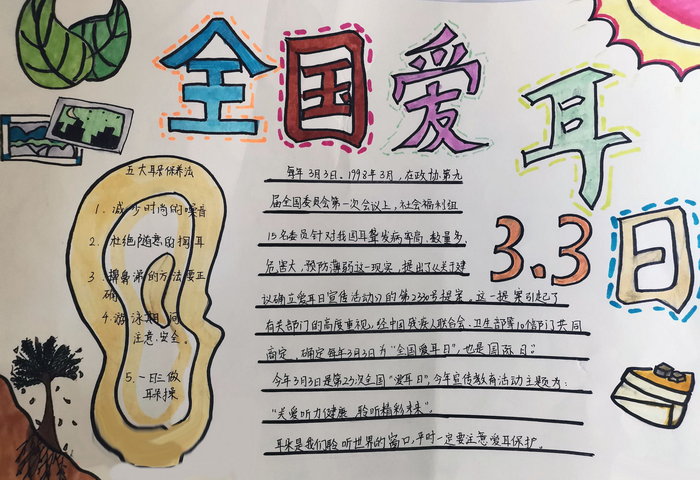 全国爱耳日
3.3
五大耳保养法
1、减少时尚的噪音
2、杜绝随意的掏耳
3、擤鼻涕的方法要正
确
4、游泳期间
注意、安全。
5、一日三做
耳操
每年3月3日。1998年3月，在政协第九
届全国委员会第一次会议上，社会福利组
15名委员针对我国耳聋发病率高、数量多、
危害大，预防薄弱这一现实，提出了《关于建
议确立爱耳日宣传活动》的第2330号提案。这一提案引起了
有关部门的高度重视，经中国残疾人联合会、卫生部等10个部门共同
商定，确定每年3月3日为“全国爱耳日”，也是国际日。
今年3月3日是第23次全国“爱耳日”，今年宣传教育活动主题为：
“关爱听力健康 聆听精彩未来”。
耳朵是我们聆听世界的窗口，平时一定要注意爱耳保护。